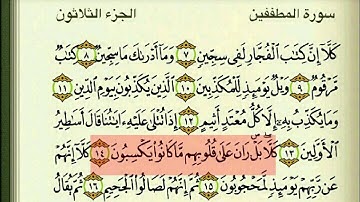 سورة المطففين الجزء الثلاثون
كَلَّآ إِنَّ كِتَٰبَ ٱلْفُجَّارِ لَفِى سِجِّينٍ ٧ وَمَآ أَدْرَىٰكَ مَا سِجِّينٌ ٨ كِتَٰبٌ
مَّرْقُومٌ ٩ وَيْلٌ يَوْمَئِذٍ لِّلْمُكَذِّبِينَ ١٠ ٱلَّذِينَ يُكَذِّبُونَ بِيَوْمِ ٱلدِّينِ ١١
وَمَا يُكَذِّبُ بِهِۦٓ إِلَّا كُلُّ مُعْتَدٍ أَثِيمٍ ١٢ إِذَا تُتْلَىٰ عَلَيْهِ ءَايَٰتُنَا قَالَ أَسَٰطِيرُ
ٱلْأَوَّلِينَ ١٣ كَلَّا بَلْ رَانَ عَلَىٰ قُلُوبِهِم مَّا كَانُوا۟ يَكْسِبُونَ ١٤ كَلَّآ إِنَّهُمْ
عَن رَّبِّهِمْ يَوْمَئِذٍ لَّمَحْجُوبُونَ ١٥ ثُمَّ إِنَّهُمْ لَصَالُوا۟ ٱلْجَحِيمِ ١٦ ثُمَّ يُقَالُ